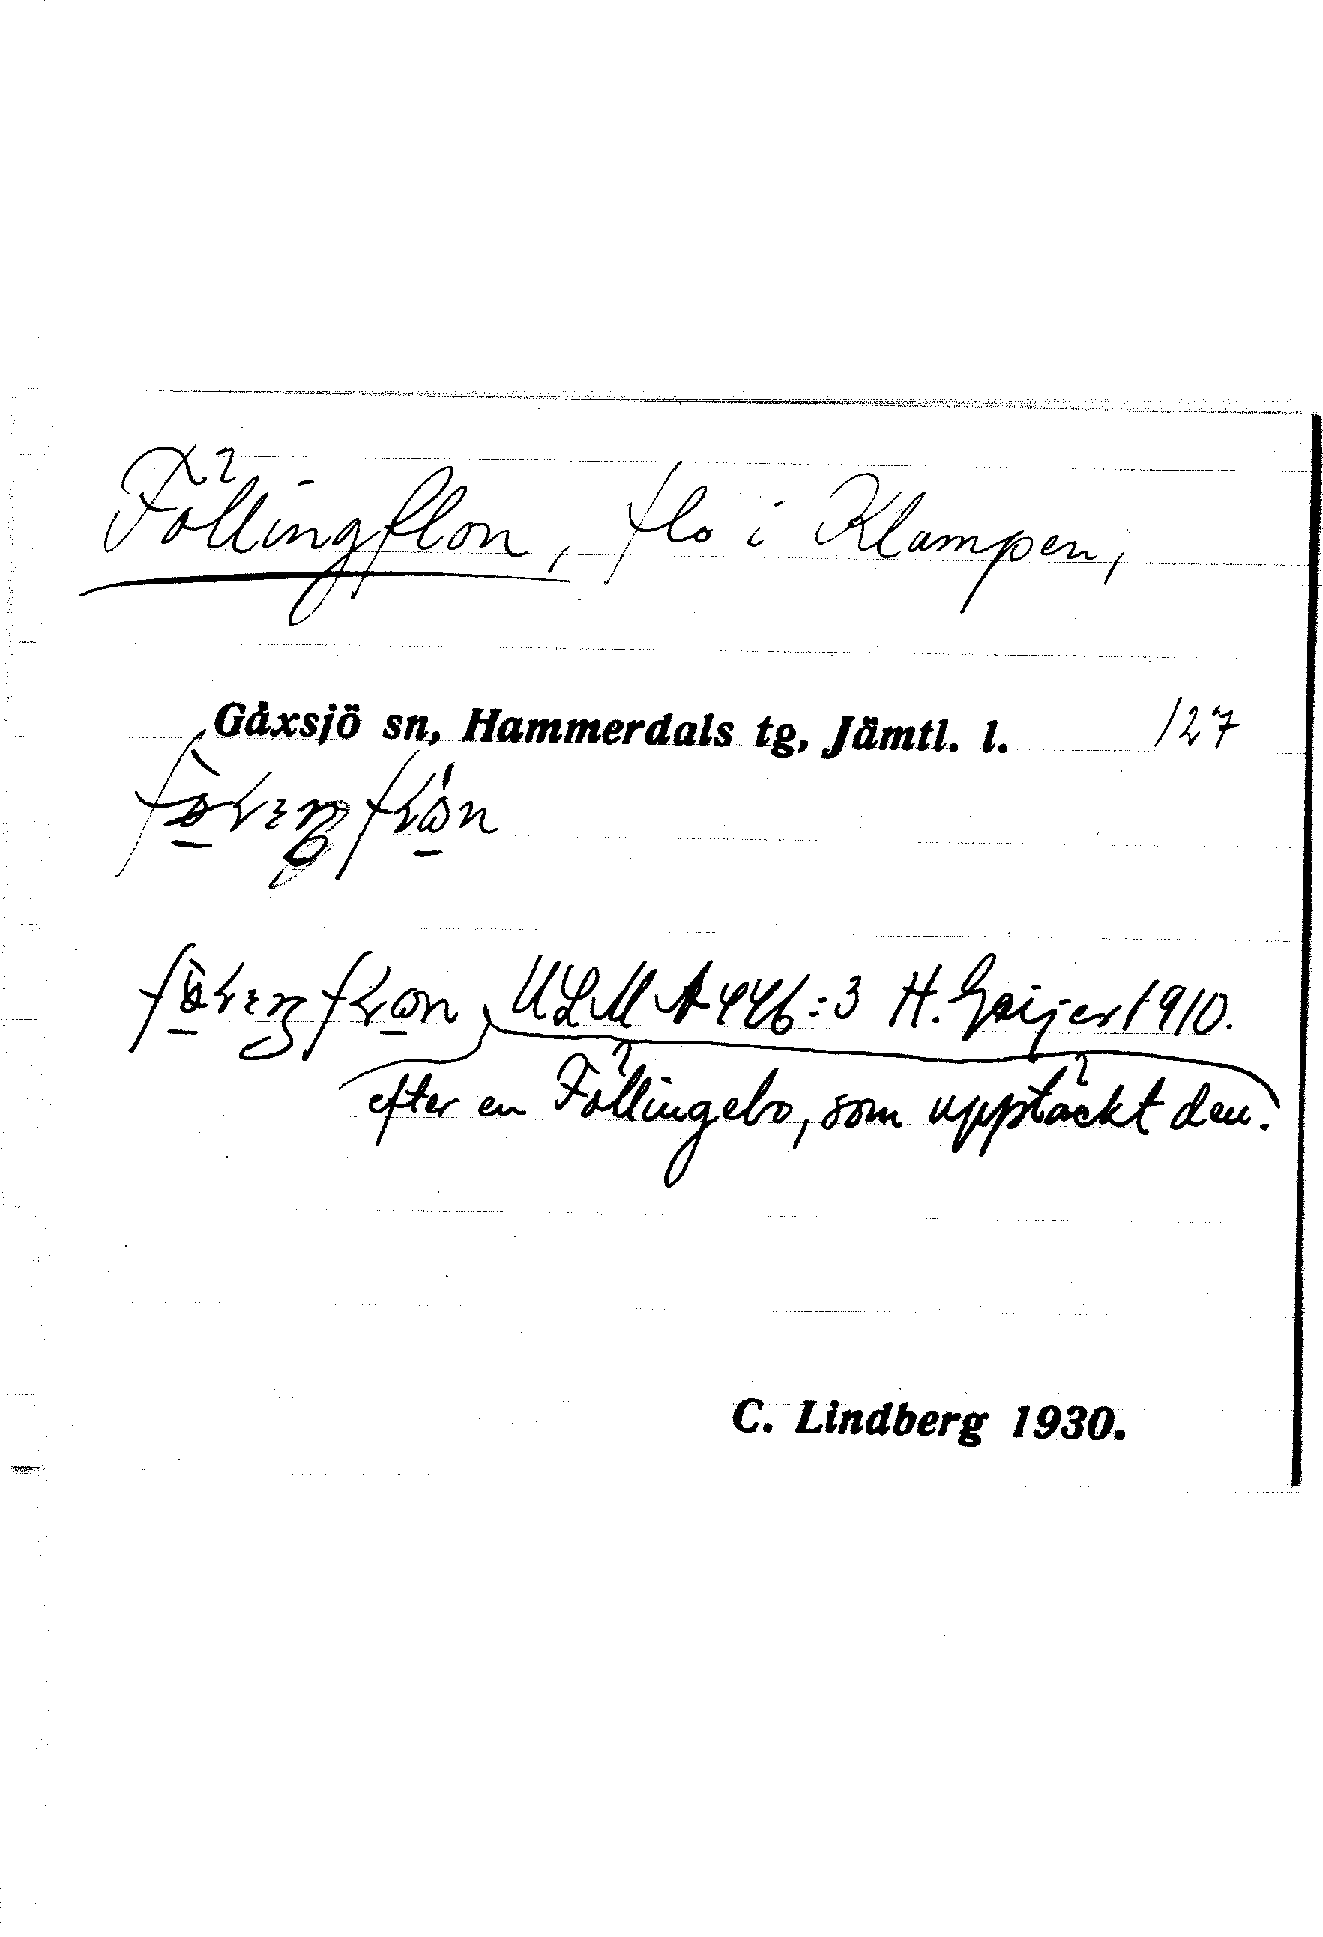 Föllingflon, flo i Klumpen,
Gåxsjö sn, Hammerdals tg, Jämtl. l. 127
ULMA 446:3 H. Geijer 1910.
efter en Föllingebo, som upptäckt den.
C. Lindberg 1930.